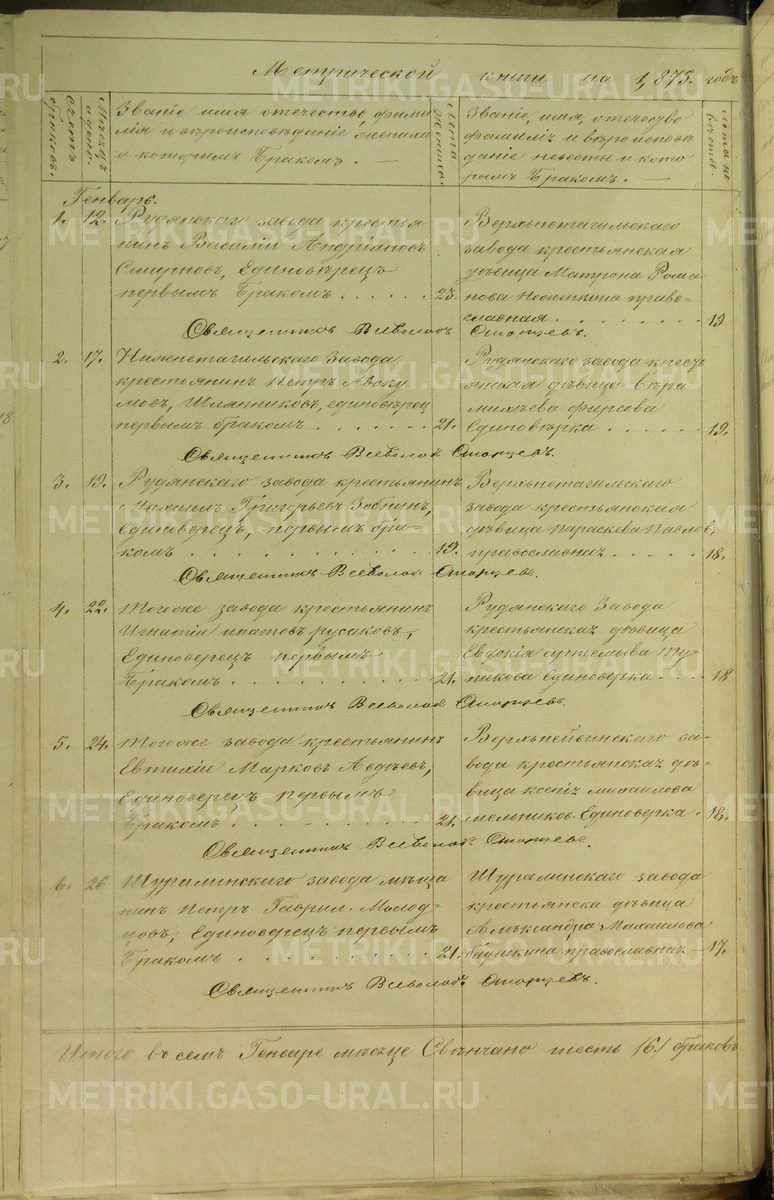 Метрической книги на 1,875. годъ
Счетъ браковъ.
Месяцъ и день.
Званіе имя отечество фами
лія и вероисповѣданіе жениха
и которымъ бракомъ. —
Лета жениха.
Званіе, имя, отечество
фамиліи и вѣроисповѣ
даніе невесты и кото
рымъ бракомъ. —
лета не весты.
Генварь.
1. 12. Рудянскаго завода крестья
нинъ Василіи Андріановъ
Смирновъ, Единовѣрецъ
первымъ Бракомъ . . . . . 23.
Верхнетагильскаго
завода крестьянская
дѣвица Матрона Рома
нова право
славная . . . . . . . . 19
Священникъ Всеволодъ
2. 17. Нижнетагильскаго Завода
крестьянинъ Петръ Аваку
мовъ, Шляпниковъ, единовѣрец
первымъ бракомъ . . . . . . 21.
Рудянскаго завода кресть
янская дѣвица вѣра
фирсова
Единовѣрка . . . . . . 19.
Священникъ Всеволодъ
3. 19. Рудянскаго завода крестьянинъ
Максимъ Григорьевъ Зобнинъ,
Единоверецъ, первымъ бра-
комъ . . . . . . . . . . . 19.
Верхнетагильскаго
завода крестьянская
дѣвица Параскева Павлов,
православная . . . . . 18.
Священникъ Всеволодъ
4. 22. Тогоже завода крестьянинъ
Игнатіи ипатовъ русаковъ,
Единоверецъ первымъ
Бракомъ . . . . . . . . . . 21.
Рудянскаго Завода
крестьянская девица
Евдокія
Единоверка . . . . 18
Священникъ Всеволодъ
5. 24. Тогоже завода крестьянинъ
Евтихіи Марковъ Авдѣевъ,
Единоверецъ первымъ
Бракомъ . . . . . . . . . . 21.
Верхнейвинскаго за-
вода крестьянская дѣ-
вица ксенія михаилова
мельников. Единоверка . 18.
Священникъ Всеволодъ
6. 26 Шуралинскаго завода мѣща
нинъ Петръ Гаврил. Молод-
цовъ, Единоверецъ первымъ
Бракомъ . . . . . . . . . . 21.
Шуралинскаго завода
крестьянска дѣвица
Алѣксандра Михаилова
православная — 17.
Священникъ Всеволодъ
Итого въ семъ Генваре месяце Свѣнчано шесть /6./ браковъ
METRIKI.GASO-URAL.RU